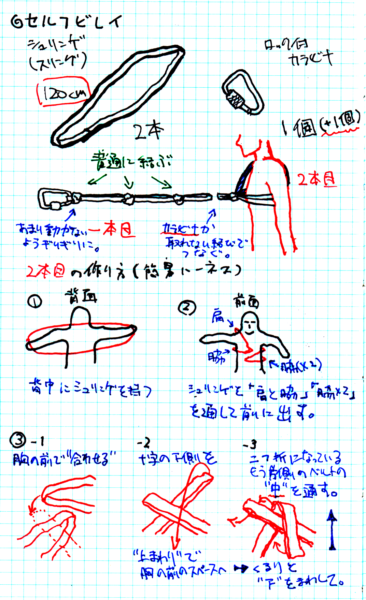 ◎セルフビレイ
シュリンゲ
(スリング)
120cm
2本
ロック付
カラビナ
1個(+1個)
普通に結ぶ
2本目
あまり動かない
ようぎりぎりに。
一本目
カラビナか
取れない結びで
つなぐ。
2本目の作り方(簡易ハーネス)
① 背面
背中にシュリンゲを持つ
② 前面
肩
脇
脇(×2)
シュリンゲを「肩と脇」「脇×2」
を通して前に出す。
③-1
胸の前で"合わせる"
-2
十字の下側を
"上まわり"で
胸の前のスペースへ
-3
二つ折になっている
もう片側のベルトの
"中"を通す。
くるりと
"下"をまわして。